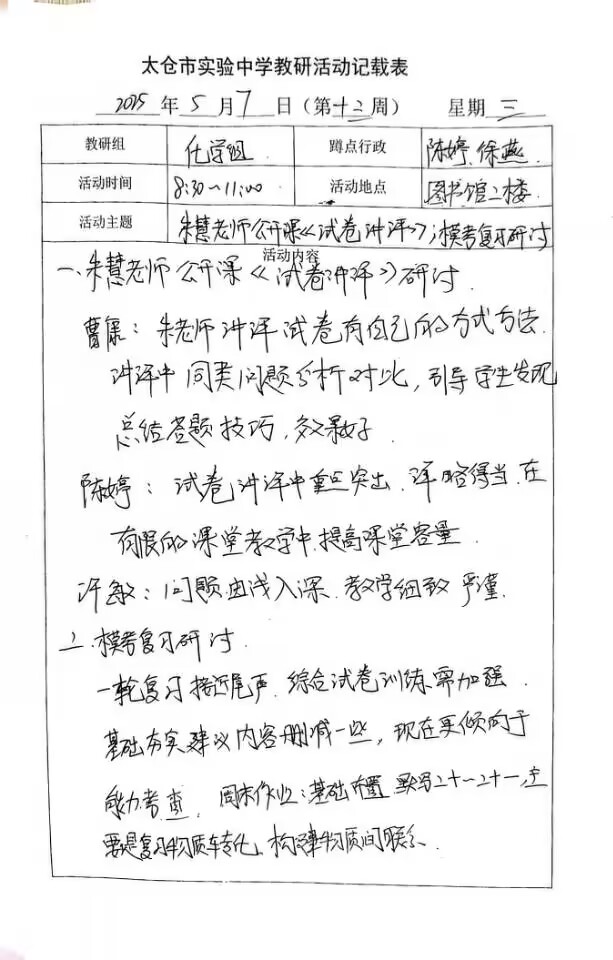 太仓市实验中学教研活动记载表
2025 年 5 月 7 日（第十二周） 星期 三
教研组 化学组 蹲点行政 陈婷 徐燕
活动时间 8:30~11:00 活动地点 图书馆二楼
活动主题 朱慧老师公开课《试卷讲评》;模考复习研讨
活动内容
一、朱慧老师公开课《试卷讲评》研讨
曹康：朱老师讲评试卷有自己的方式方法.
讲评中同类问题分析对比，引导学生发现
总结答题技巧，效果好.
陈婷：试卷讲评中重点突出.详略得当.在
有限的课堂教学中.提高课堂容量.
许敏：问题由浅入深.教学细致 严谨.
二、模考复习研讨.
一轮复习接近尾声.综合试卷训练需加强.
基础夯实建议内容删减一些，现在更倾向于
能力考查.周末作业:基础布置 默写二十~二十一,主
要是复习物质转化、构建物质间联系.